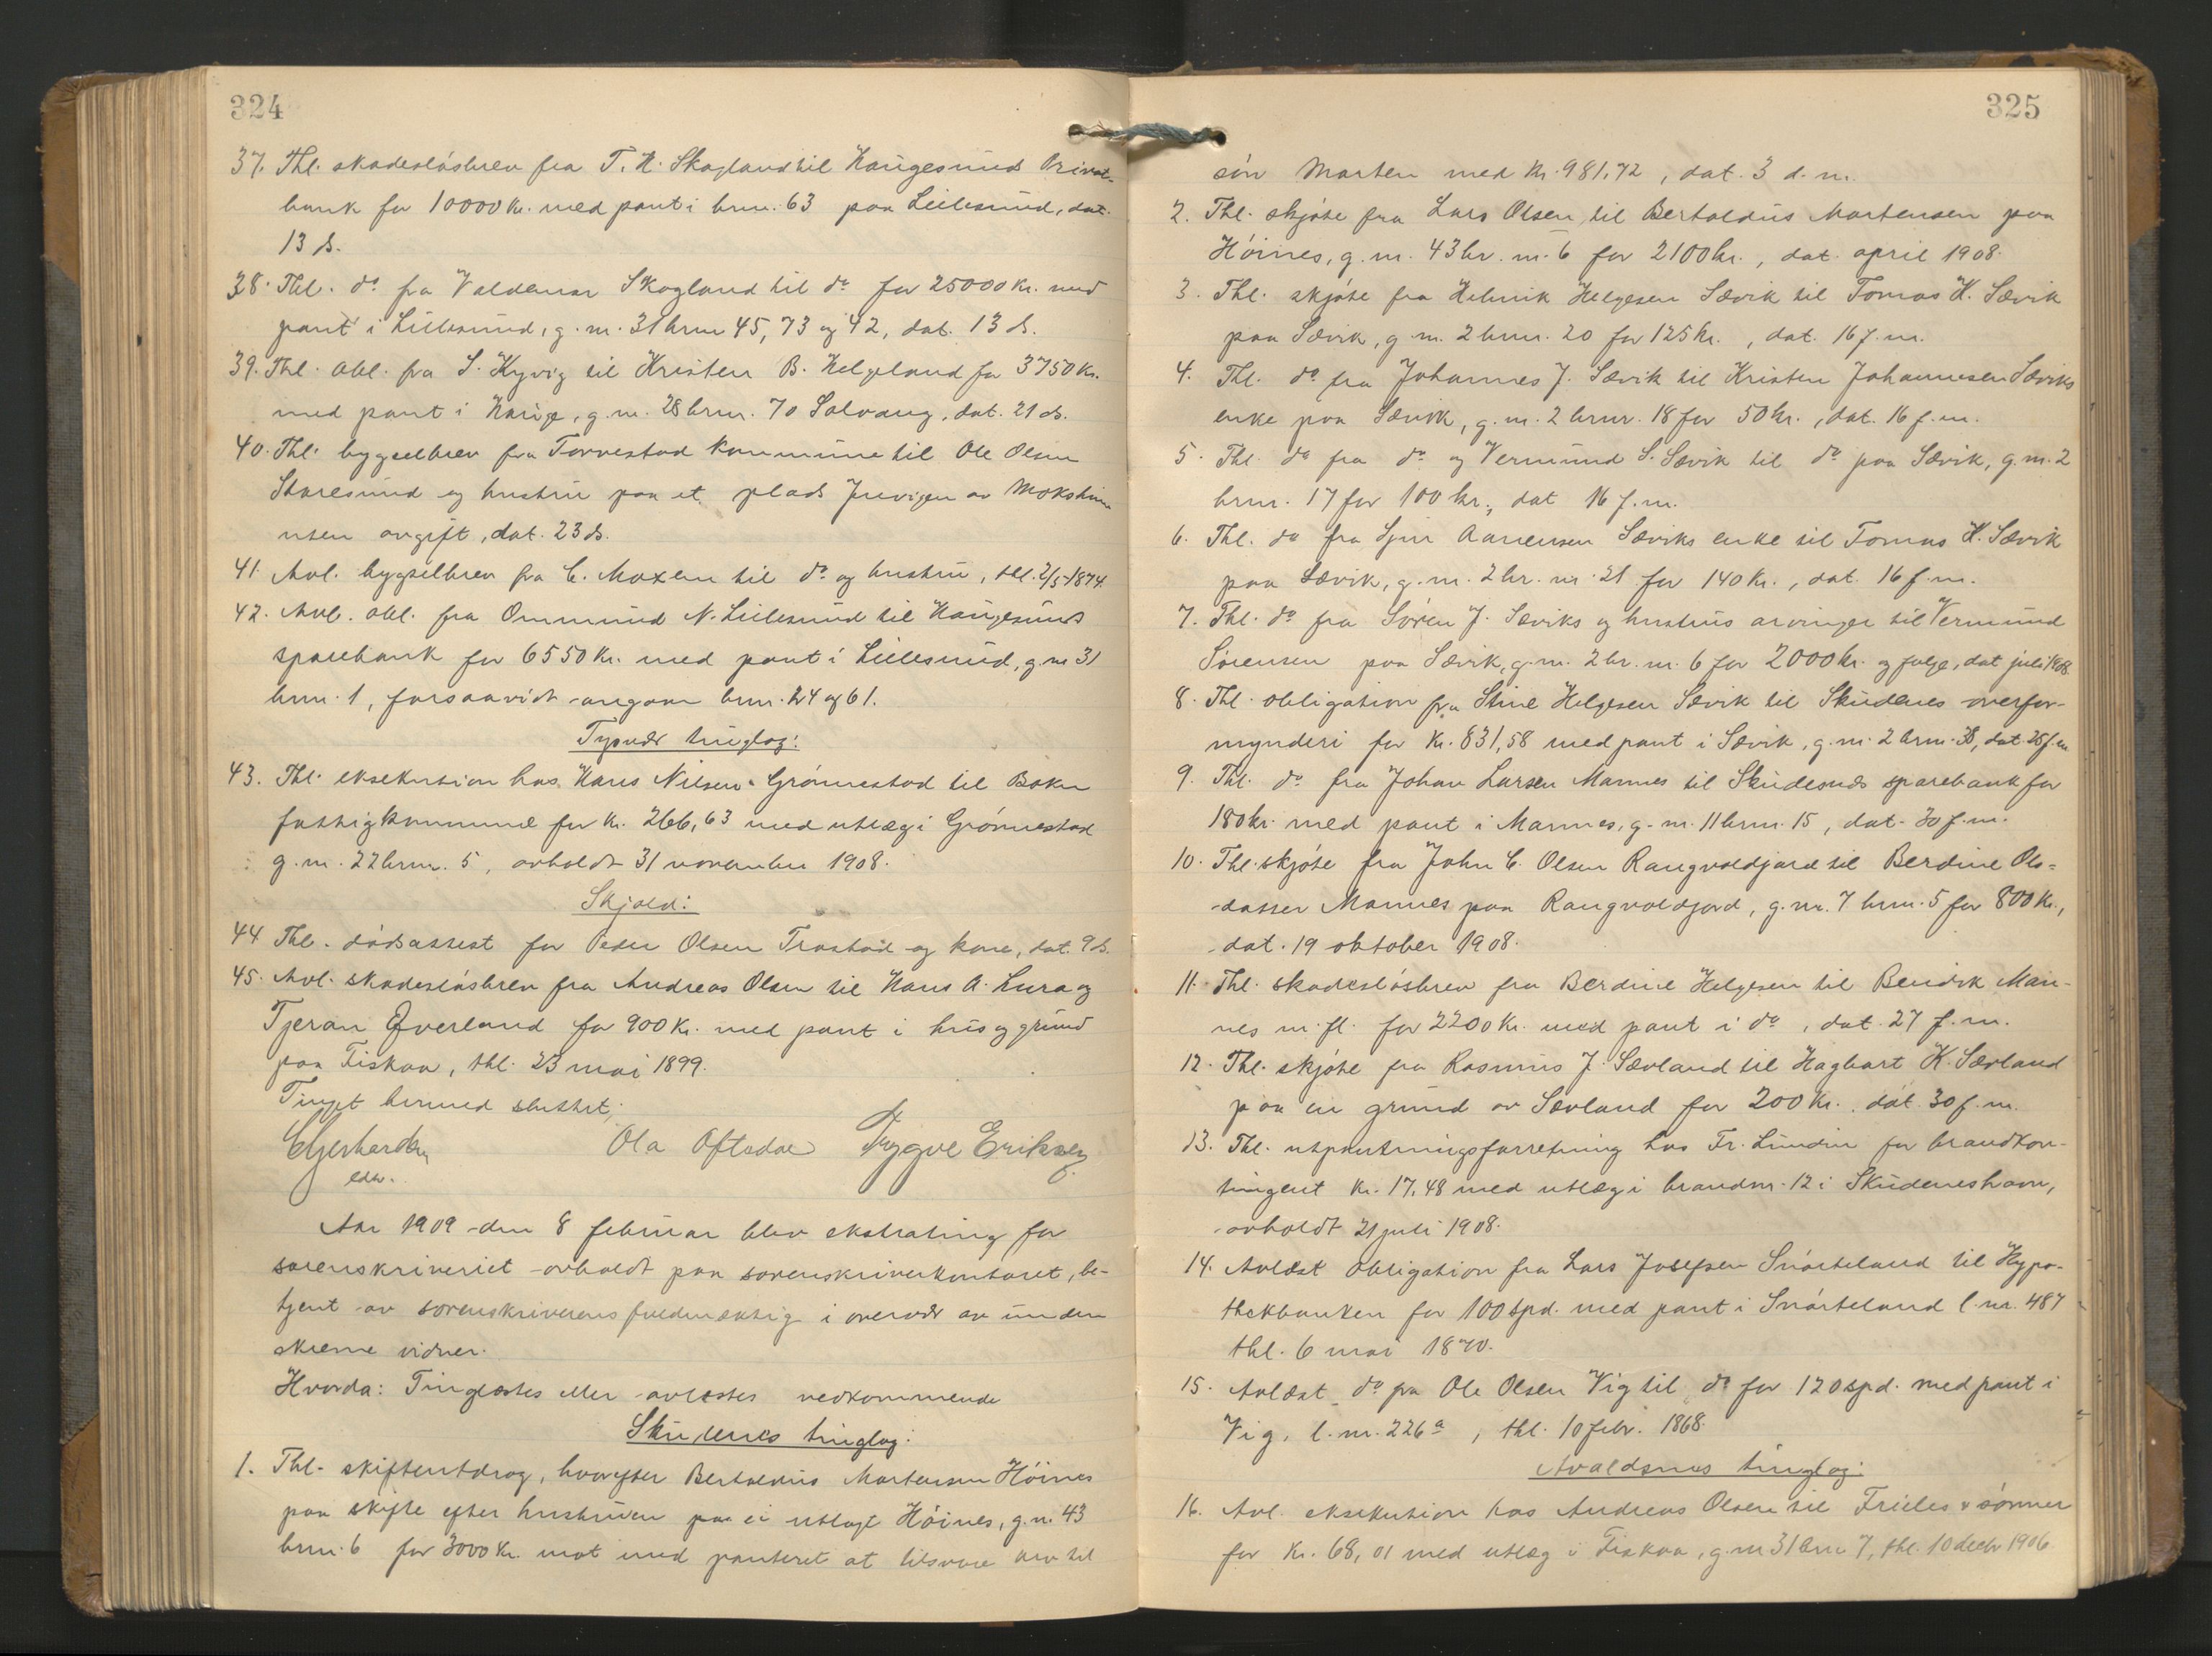 324
37. Thl. skadesløsbrev fra T. H. Skogland til Haugesunds Privat-
bank for 10000 kr. med pant i brnr. 63 paa Lillesund, dat.
13 ds.
38. Thl. do fra Valdemar Skogland til do for 25000 kr. med
pant i Lillesund, g. nr. 31 brnr 45, 73 og 42, dat. 13 ds.
39. Thl. obl. fra S. Kyvig til Kristen B. Helgeland for 3750 kr.
med pant i Hauge, g. nr. 28 brnr. 70 Solvang, dat. 21 ds.
40. Thl. bygselbrev fra Torvestad kommune til Ole Olsen
Storesund og hustru paa et plads av
uten avgift, dat. 23 ds.
41. Avl. bygselbrev fra C. til do og hustru, thl. 2/5 1874.
42. Avl. obl. fra Ommund N. Lillesund til Haugesunds
sparebank for 6550 kr. med pant i Lillesund, g. nr 31
brnr. 1, forsaavidt angaar brnr. 24 og 61.
Tysvær tinglag:
43. Thl. eksekution hos Hans Nilsen Grønnestad til Bokn
fattigkommune for kr. 266,63 med utlæg i Grønnestad
g. nr. 22 brnr. 5, avholdt 31 november 1908.
Skjold:
44. Thl. dødsattest for Peder Olsen Trostad og kone, dat. 9 ds.
45. Avl. skadesløsbrev fra Andreas Olsen til Hans A. Lura og
Tjeran Øverland for 900 kr. med pant i hus og grund
paa Fiskaa, thl. 23 mai 1899.
Tinget hermed sluttet;
EGerhardsen Ola Oftedal Trygve Eriksen
edv.
Aar 1909 den 8 februar blev ekstrating for
sorenskriveriet avholdt paa sorenskriverkontoret, be-
tjent av sorenskriverens fuldmægtig i overvær av under
skrevne vidner.
Hvorda: Tinglæstes eller avlæstes vedkommende
Skudenes tinglag:
1. Thl. skifteutdrag, hvorefter Bertoldus Mortensen Høines
paa skifte efter hustruen paa ei utlagt Høines, g. nr. 43
brnr. 6 for 3000 kr. mot med panteret at tilsvare arv til
325
søn Morten med kr. 981,72, dat. 3 d. m.
2. Thl. skjøte fra Lars Olsen til Bertoldus Mortensen paa
Høines, g. nr. 43 br. nr. 6 for 2100 kr., dat. april 1908.
3. Thl. skjøte fra Helmik Helgesen Sævik til Tomas H. Sævik
paa Sævik, g. nr. 2 brnr. 20 for 125 kr., dat. 16 f. m.
4. Thl. do fra Johannes J. Sævik til Kristen Johannesen Sæviks
enke paa Sævik, g. nr. 2 brnr. 18 for 50 kr., dat. 16 f. m.
5. Thl. do fra do og Vermund S. Sævik til do paa Sævik, g. nr. 2
brnr. 17 for 100 kr., dat 16 f. m.
6. Thl. do fra Aanensen Sæviks enke til Tomas H. Sævik
paa Sævik, g. nr. 2 br. nr. 21 for 140 kr., dat. 16 f. m.
7. Thl. do fra Søren J. Sæviks og hustrus arvinger til Vermund
Sørensen paa Sævik, g. nr. 2 br. nr. 6 for 2000 kr. og følge, dat juli 1908.
8. Thl. obligation fra Stine Helgesen Sævik til Skudenes overfor-
mynderi for kr. 831,58 med pant i Sævik, g. nr. 2 brnr. 38, dat. 28 f. m.
9. Thl. do fra Johan Larsen Mannes til Skudesnæs sparebank for
180 kr. med pant i Mannes, g. nr. 11 brnr. 15, dat. 30 f. m.
10. Thl. skjøte fra John C. Olsen Rangvoldjord til Berdine Ols-
datter Mannes paa Rangvoldjord, g. nr. 7 brnr. 5 for 800 kr.,
dat. 19 oktober 1908.
11. Thl. skadesløsbrev fra Berdine Helgesen til Bendik Man-
nes m. fl. for 2200 kr. med pant i do, dat. 27 f. m.
12. Thl. skjøte fra Rasmus J. Sævland til Hagbart K. Sævland
paa en grund av Sævland for 200 kr. dat. 30 f. m.
13. Thl. utpantningsforretning hos Fr. Lundin for brandkon-
tingent kr. 17,48 med utlæg i brandnr. 12 i Skudeneshavn,
avholdt 21 juli 1908.
14. Avlæst obligation fra Lars Josefsen Snørteland til Hypo-
thekbanken for 100 spd. med pant i Snørteland l. nr. 487
thl. 6 mai 1870.
15. Avlæst do fra Ole Olsen Vig til do for 120 spd. med pant i
Vig, l. nr. 226a, thl. 10 febr. 1868.
Avaldsnes tinglag:
16. Avl. eksekution hos Andreas Olsen til Frieles sønner
for kr. 68,01 med utlæg i Fiskaa, g. nr 31 brnr 7, thl. 10 decbr 1906